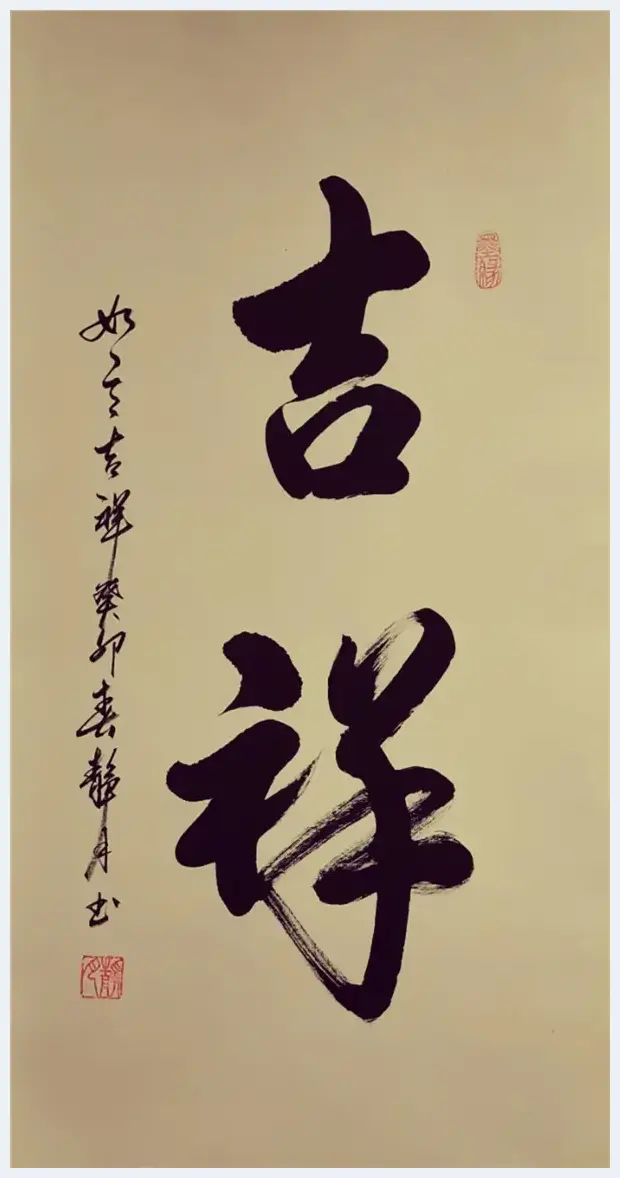 吉祥
如意吉祥癸卯春静月书